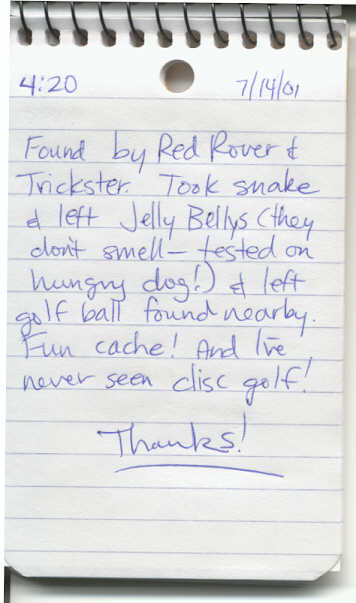 4:20 7/14/01
Found by Red Rover &
Trickster. Took snake
& left Jelly Bellys (they
don't smell - tested on
hungry dog!) & left
golf ball found nearby.
Fun cache! And I've
never seen disc golf!
Thanks!